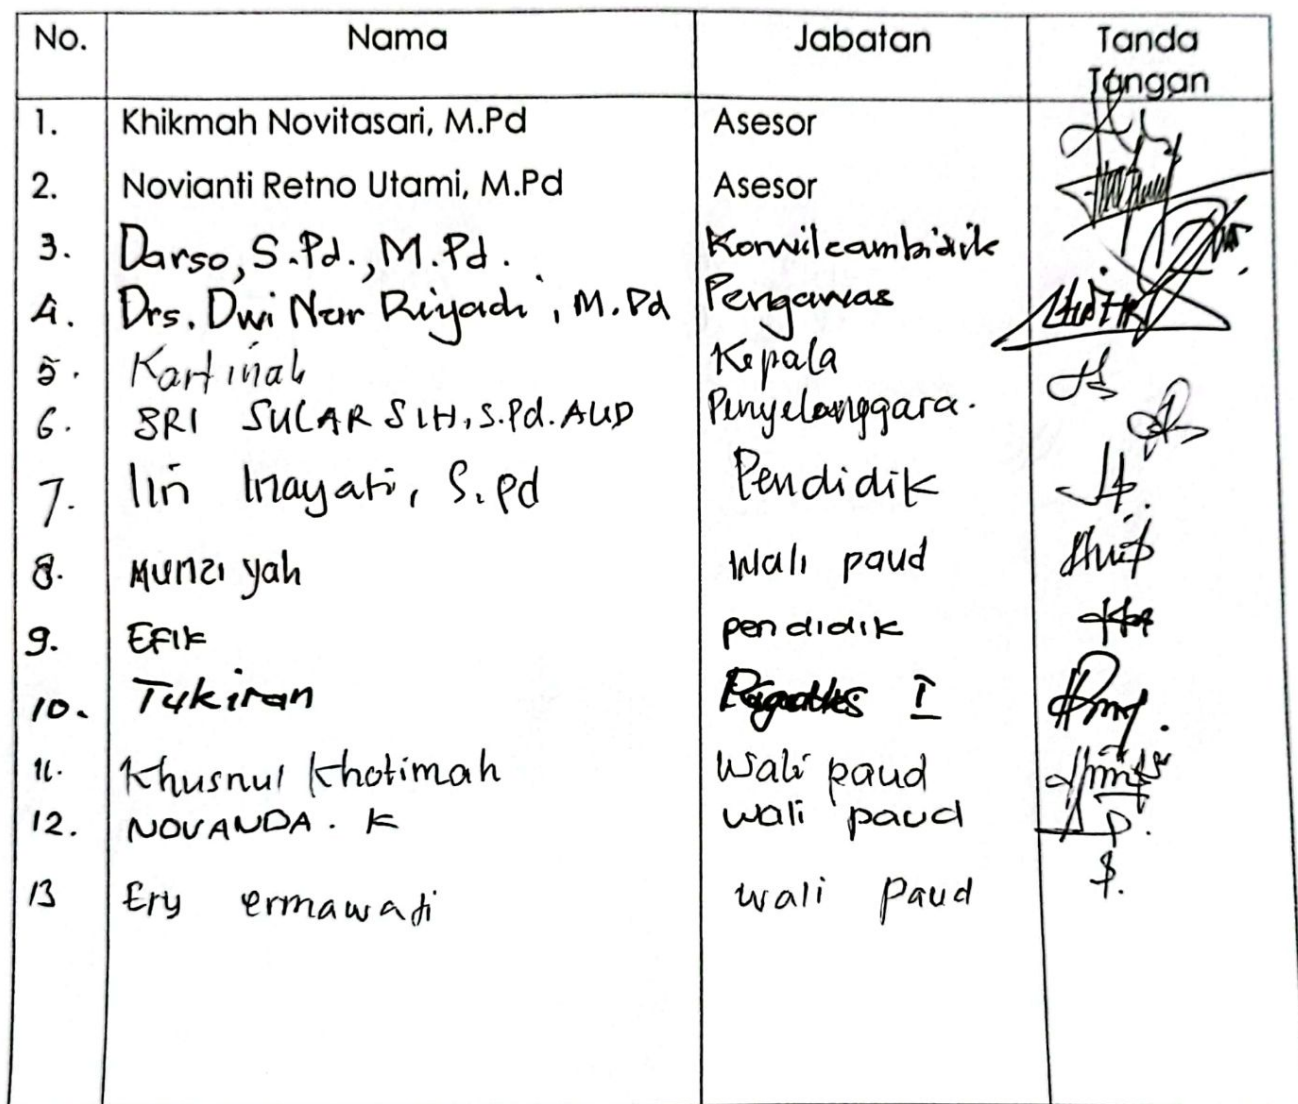 No. Nama Jabatan Tanda Tangan
1. Khikmah Novitasari, M.Pd Asesor
2. Novianti Retno Utami, M.Pd Asesor
3. Darso, S.Pd., M.Pd. Korwilcambidik
4. Drs. Dwi Nur Riyadi, M.Pd Pengawas
5. Kartinah Kepala
6. SRI SULARSIH, S.Pd. AUD Penyelenggara.
7. Iin Inayati, S.Pd Pendidik
8. Munziyah Wali paud
9. EFIK pendidik
10. Tukiran I
11. Khusnul Khotimah Wali paud
12. NOVANDA. K wali paud
13 Ery ermawati wali Paud